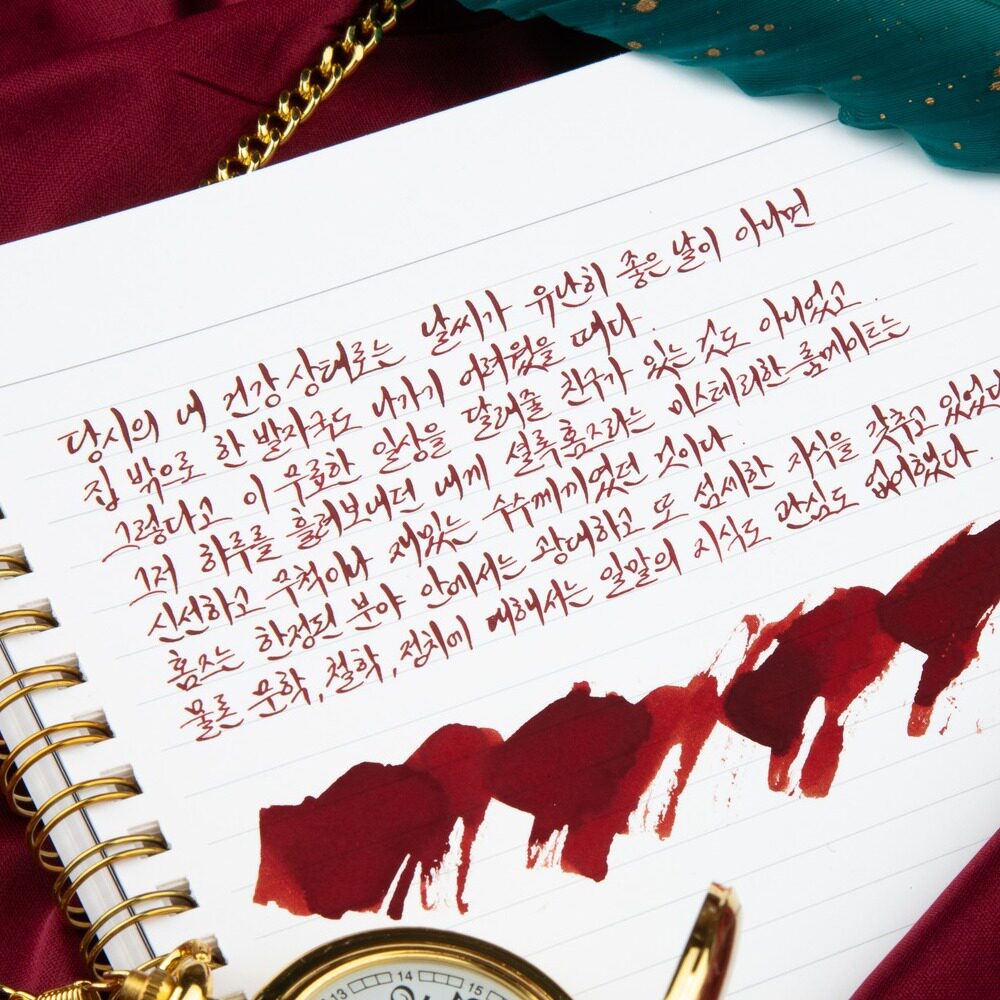 당시의 내 건강 상태로는 날씨가 유난히 좋은 날이 아니면
집 밖으로 한 발자국도 나가기 어려웠을 때다.
그렇다고 이 무료한 일상을 달래줄 친구가 있는 것도 아니었고.
그저 하루를 흘려보내던 내게 셜록홈즈라는 미스테리한 룸메이트는
신선하고 무척이나 재밌는 수수께끼였던 것이다.
홈즈는 한정된 분야 안에서는 광대하고 또 섬세한 지식을 갖추고 있었다
물론 문학, 철학, 정치에 대해서는 일말의 지식도 관심도 없어했다.
13 14 15